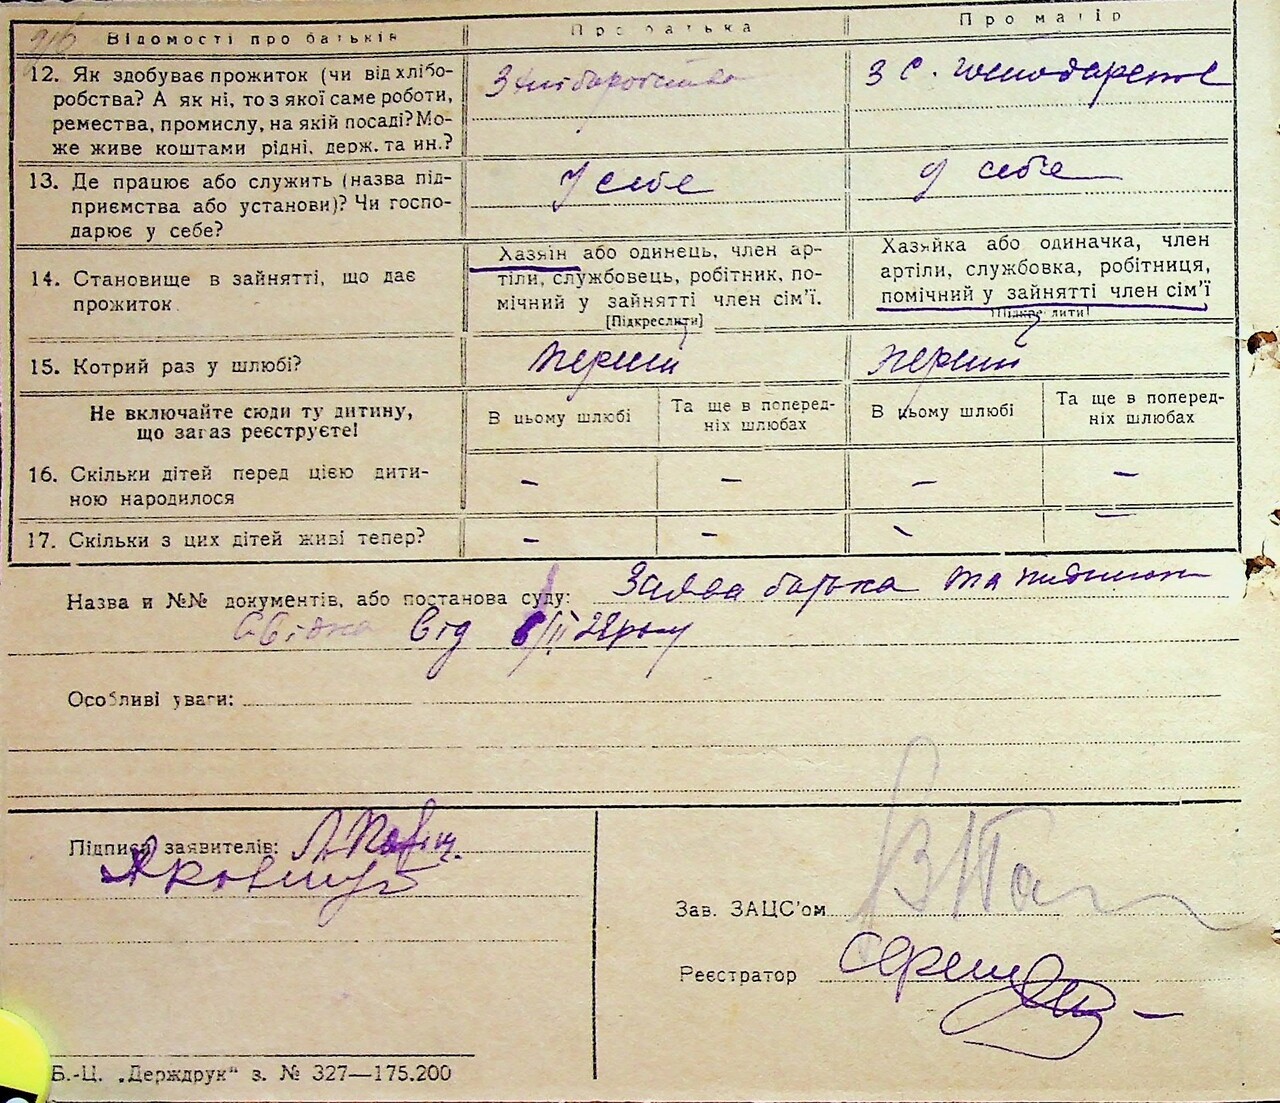 916
Відомості про батьків
Про батька
Про матір
12. Як здобуває прожиток (чи від хлібо-
робства? А як ні, то з якої саме роботи,
ремества, промислу, на якій посаді? Мо-
же живе коштами рідні, держ. та ин.?
З хліборобства
З с. господарства
13. Де працює або служить (назва під-
приємства або установи)? Чи госпо-
дарює у себе?
У себе
У себе
14. Становище в зайнятті, що дає
прожиток
Хазяїн або одинець, член ар-
тіли, службовець, робітник, по-
мічний у зайнятті член сім'ї.
[Підкреслити]
Хазяйка або одиначка, член
артіли, службовка, робітниця,
помічний у зайнятті член сім'ї
[Підкреслити]
15. Котрий раз у шлюбі?
перший
перший
Не включайте сюди ту дитину,
що зараз реєструєте!
В цьому шлюбі
Та ще в поперед-
ніх шлюбах
В цьому шлюбі
Та ще в поперед-
ніх шлюбах
16. Скільки дітей перед цією дити-
ною народилося
– – – –
17. Скільки з цих дітей живі тепер?
– – – –
Назва и №№ документів, або постанова суду: Заява батька та
від 6/II 28 року
Особливі уваги:
Підписи заявителів:
Зав. ЗАЦС'ом
Реєстратор
Б.-Ц. „Держдрук" з. № 327—175.200